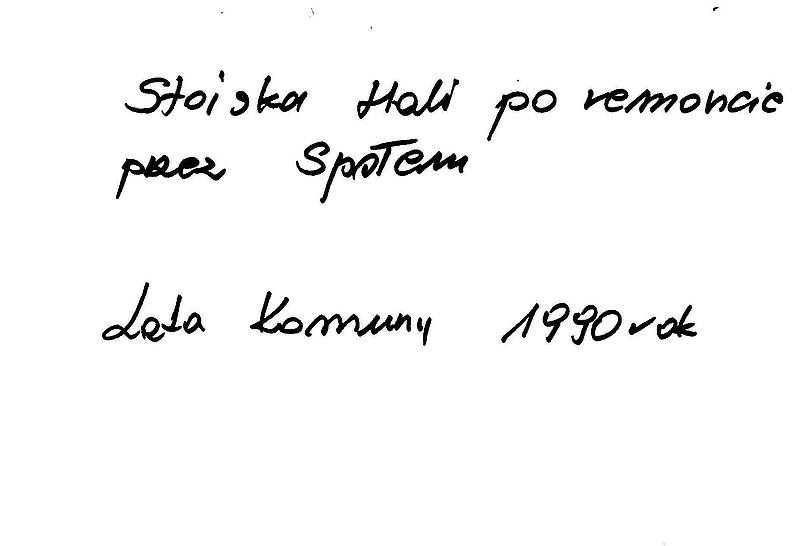 Stoiska Hali po remoncie
przez Społem
Lata Komuny 1990 rok